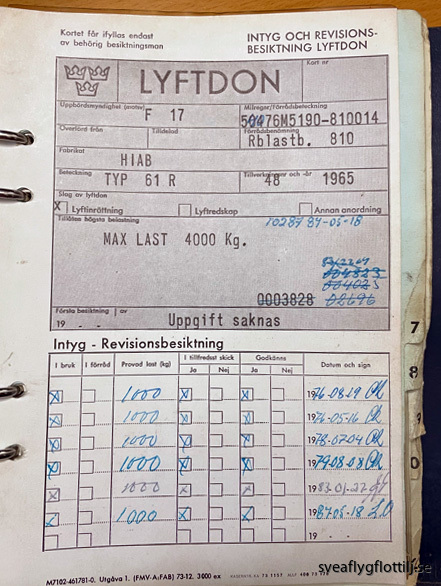 Kortet får ifyllas endast
av behörig besiktningsman
INTYG OCH REVISIONS-
BESIKTNING LYFTDON
LYFTDON
Kort nr
Uppbördsmyndighet (motsv)
F 17
Milregnr/Förrådsbeteckning
76M5190-810014
Överförd från
Tilldelad
Förrådsbenämning
Rblastb. 810
Fabrikat
HIAB
Beteckning
TYP 61 R
48 1965
Slag av lyftdon
X Lyftinrättning
Lyftredskap
Annan anordning
Tillåten högsta belastning
87-05-18
MAX LAST 4000 Kg.
0003828 02696
Första besiktning av
19 . .
Uppgift saknas
7
8
9
0
Intyg - Revisionsbesiktning
I bruk
I förråd
Provad last (kg)
I tillfredsst skick
Godkänns
Datum och sign
Ja
Nej
Ja
Nej
X 1000 X X 1976-08-19
X 1000 X X
X 1000 X X 1978-07-04
X 1000 X X 1979-08-08
X 1000 X X 1983-01-27
X 1000 X X 1987-05-18
19 . .
M7102-461781-0. Utgåva 1. (FMV-A:FAB) 73-12. 3000 ex
sveaflygflottilj.se